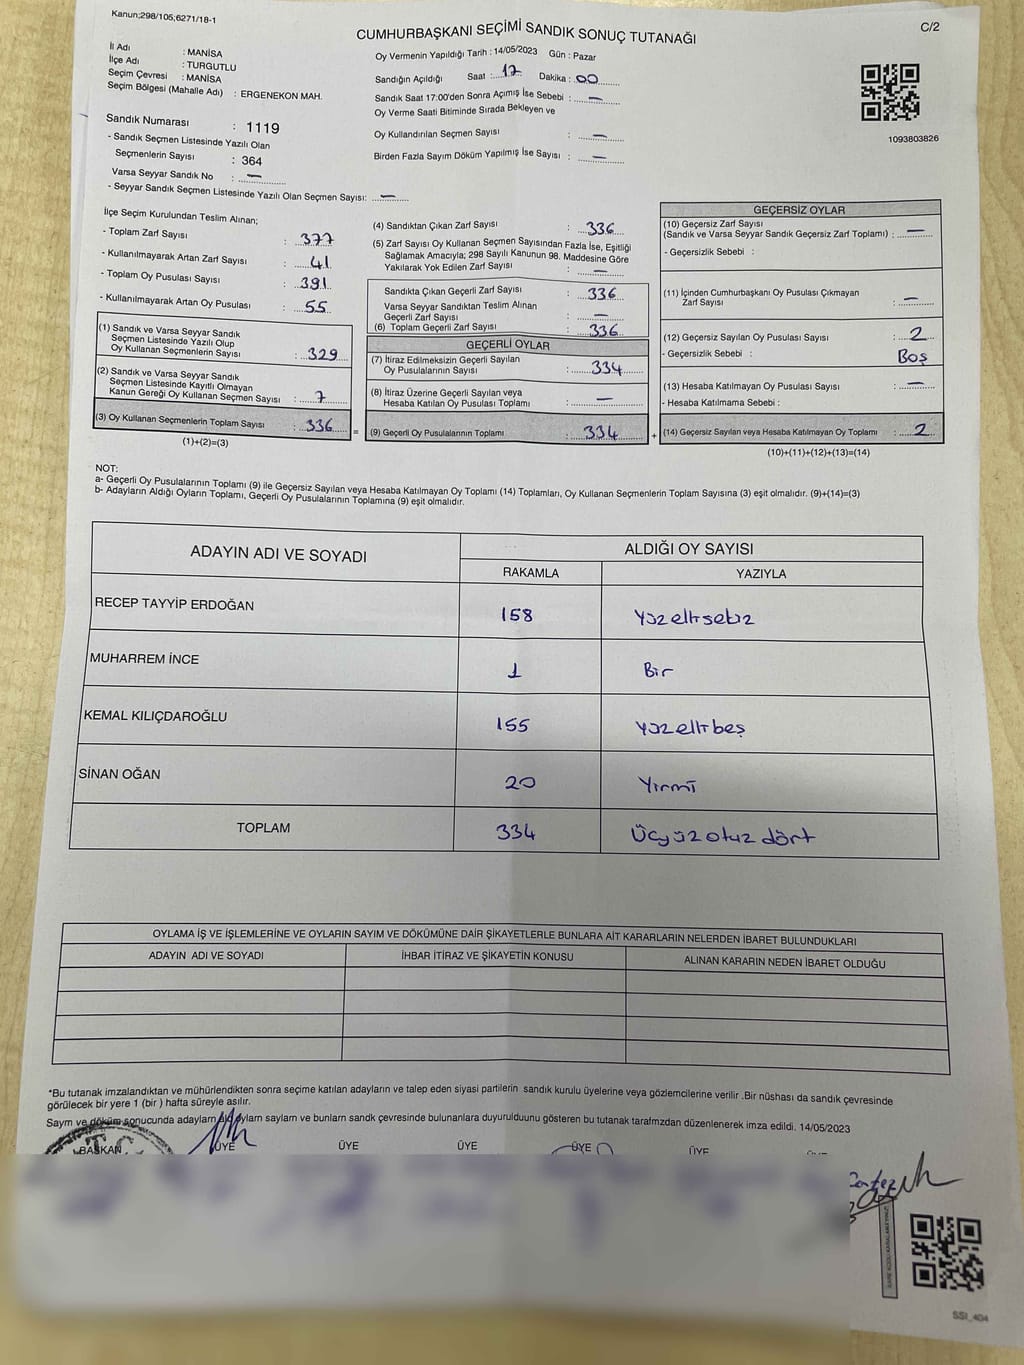 Kanun;298/105;6271/18-1
C/2
CUMHURBAŞKANI SEÇİMİ SANDIK SONUÇ TUTANAĞI
İl Adı : MANİSA
İlçe Adı : TURGUTLU
Seçim Çevresi : MANİSA
Seçim Bölgesi (Mahalle Adı) : ERGENEKON MAH.
Sandık Numarası : 1119
- Sandık Seçmen Listesinde Yazılı Olan
Seçmenlerin Sayısı : 364
Varsa Seyyar Sandık No : —
- Seyyar Sandık Seçmen Listesinde Yazılı Olan Seçmen Sayısı: —
Oy Vermenin Yapıldığı Tarih : 14/05/2023 Gün : Pazar
Sandığın Açıldığı Saat : 17 Dakika : 00
Sandık Saat 17:00'den Sonra Açımış İse Sebebi : —
Oy Verme Saati Bitiminde Sırada Bekleyen ve
Oy Kullandırılan Seçmen Sayısı : —
Birden Fazla Sayım Döküm Yapılmış İse Sayısı : —
1093803826
İlçe Seçim Kurulundan Teslim Alınan;
- Toplam Zarf Sayısı : 377
- Kullanılmayarak Artan Zarf Sayısı : 41
- Toplam Oy Pusulası Sayısı : 391
- Kullanılmayarak Artan Oy Pusulası : 55
(1) Sandık ve Varsa Seyyar Sandık
Seçmen Listesinde Yazılı Olup
Oy Kullanan Seçmenlerin Sayısı : 329
(2) Sandık ve Varsa Seyyar Sandık
Seçmen Listesinde Kayıtlı Olmayan
Kanun Gereği Oy Kullanan Seçmen Sayısı : 7
(3) Oy Kullanan Seçmenlerin Toplam Sayısı : 336
(1)+(2)=(3)
(4) Sandıktan Çıkan Zarf Sayısı : 336
(5) Zarf Sayısı Oy Kullanan Seçmen Sayısından Fazla İse, Eşitliği
Sağlamak Amacıyla; 298 Sayılı Kanunun 98. Maddesine Göre
Yakılarak Yok Edilen Zarf Sayısı : —
Sandıkta Çıkan Geçerli Zarf Sayısı : 336
Varsa Seyyar Sandıktan Teslim Alınan
Geçerli Zarf Sayısı : —
(6) Toplam Geçerli Zarf Sayısı : 336
GEÇERLİ OYLAR
(7) İtiraz Edilmeksizin Geçerli Sayılan
Oy Pusulalarının Sayısı : 334
(8) İtiraz Üzerine Geçerli Sayılan veya
Hesaba Katılan Oy Pusulası Toplamı : —
= (9) Geçerli Oy Pusulalarının Toplamı : 334 +
GEÇERSİZ OYLAR
(10) Geçersiz Zarf Sayısı
(Sandık ve Varsa Seyyar Sandık Geçersiz Zarf Toplamı) : —
- Geçersizlik Sebebi :
(11) İçinden Cumhurbaşkanı Oy Pusulası Çıkmayan
Zarf Sayısı : —
(12) Geçersiz Sayılan Oy Pusulası Sayısı : 2
- Geçersizlik Sebebi : Boş
(13) Hesaba Katılmayan Oy Pusulası Sayısı : —
- Hesaba Katılmama Sebebi :
(14) Geçersiz Sayılan veya Hesaba Katılmayan Oy Toplamı : 2
(10)+(11)+(12)+(13)=(14)
NOT:
a- Geçerli Oy Pusulalarının Toplamı (9) ile Geçersiz Sayılan veya Hesaba Katılmayan Oy Toplamı (14) Toplamları, Oy Kullanan Seçmenlerin Toplam Sayısına (3) eşit olmalıdır. (9)+(14)=(3)
b- Adayların Aldığı Oyların Toplamı, Geçerli Oy Pusulalarının Toplamına (9) eşit olmalıdır.
ADAYIN ADI VE SOYADI ALDIĞI OY SAYISI
RAKAMLA YAZIYLA
RECEP TAYYİP ERDOĞAN 158 Yüzellisekiz
MUHARREM İNCE 1 Bir
KEMAL KILIÇDAROĞLU 155 Yüzellibeş
SİNAN OĞAN 20 Yirmi
TOPLAM 334 Üçyüzotuz dört
OYLAMA İŞ VE İŞLEMLERİNE VE OYLARIN SAYIM VE DÖKÜMÜNE DAİR ŞİKAYETLERLE BUNLARA AİT KARARLARIN NELERDEN İBARET BULUNDUKLARI
ADAYIN ADI VE SOYADI İHBAR İTİRAZ VE ŞİKAYETİN KONUSU ALINAN KARARIN NEDEN İBARET OLDUĞU
*Bu tutanak imzalandıktan ve mühürlendikten sonra seçime katılan adayların ve talep eden siyasi partilerin sandık kurulu üyelerine veya gözlemcilerine verilir .Bir nüshası da sandık çevresinde
görülecek bir yere 1 (bir ) hafta süreyle asılır.
Saym ve döküm sonucunda adaylarn ald oylarn saylam ve bunlarn sandk çevresinde bulunanlara duyurulduunu gösteren bu tutanak tarafmzdan düzenlenerek imza edildi. 14/05/2023
BAŞKAN ÜYE ÜYE ÜYE ÜYE ÜYE
SSI_404